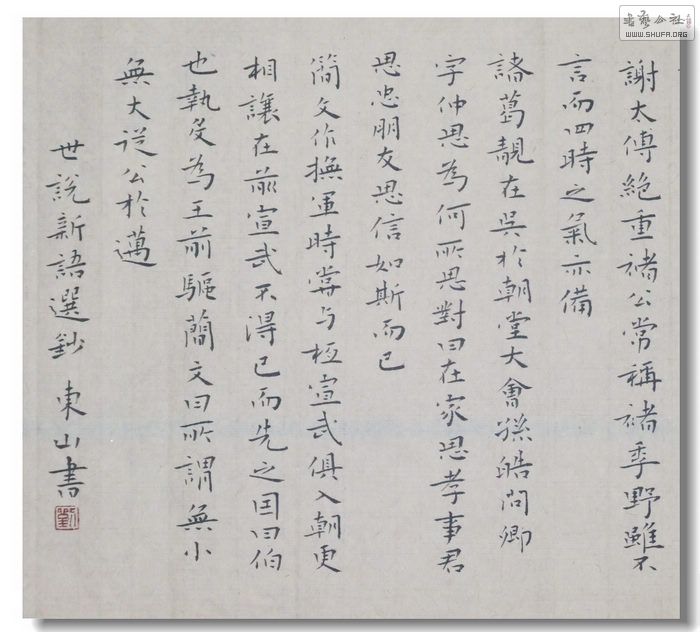 謝太傅絕重褚公常稱褚季野雖不
言而四時之氣亦備
諸葛靚在吳於朝堂大會孫皓問卿
字仲思為何所思對曰在家思孝事君
思忠朋友思信如斯而已
簡文作撫軍時嘗与桓宣武俱入朝更
相讓在前宣武不得已而先之因曰伯
也執殳為王前驅簡文曰所謂無小
無大從公於邁
世說新語選鈔 東山書
劉
書藝公社
WWW.SHUFA.ORG